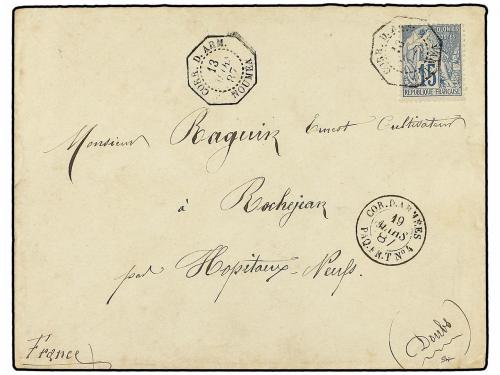 CORR. D. ARM.
13
87
NOUMEA
CORR. D. ARM.
13
COLONIES
15
REPUBLIQUE FRANCAISE
Monsieur Raguin Ernest Cultivateur
à Rochejean
par Hopitaux-Neufs
COR. D. ARMEES
19
MARS
87
PAQ. FR. T Nº 4
France
(Doubs)